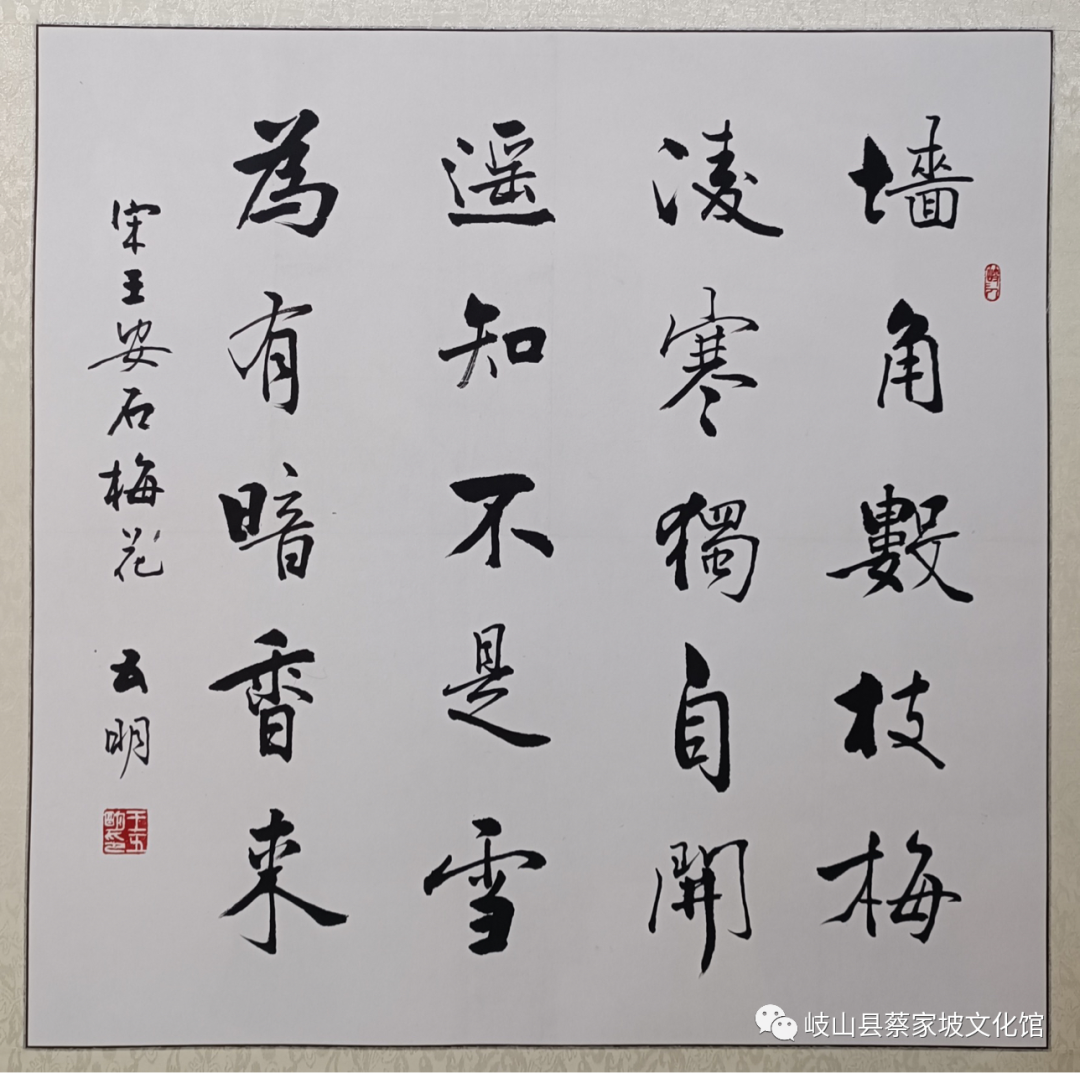 墙角數枝梅
凌寒獨自開
遥知不是雪
為有暗香来
宋王安石梅花
云明
岐山县蔡家坡文化馆